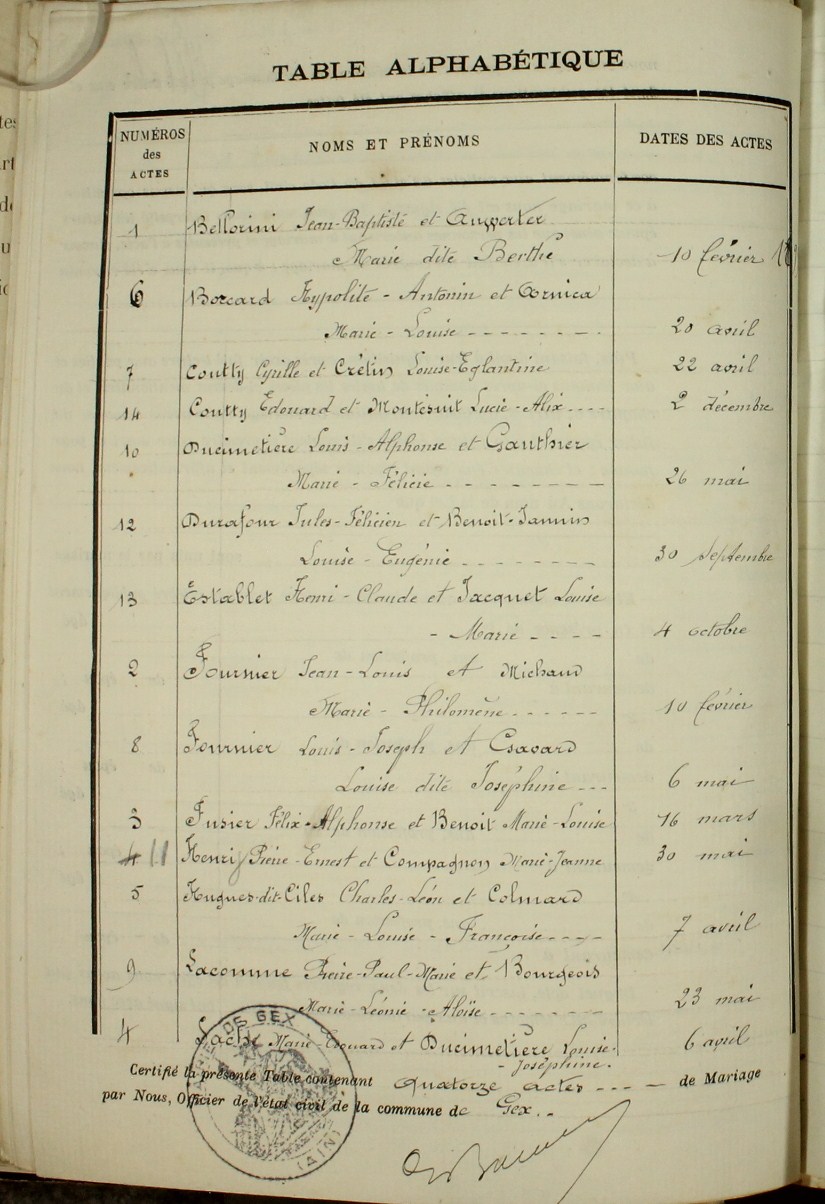 TABLE ALPHABÉTIQUE
NUMÉROS des ACTES
NOMS ET PRÉNOMS
DATES DES ACTES
1 Bellorini Jean-Baptiste et
Marie dite Berthe 10 février
6 Borcard Hypolite - Antonin et Arnica
Marie - Louise - - - - - - - - 20 avril
7 Coutty Cyrille et Crétin Louise-Eglantine 22 avril
14 Coutty Edouard et Montésuit Lucie-Alix - - - - 2 décembre
10 Ducimetière Louis - Alphonse et Gauthier
Marie - Félicie - - - - - - - - 26 mai
12 Durafour Jules-Félicien et Benoit-Jannin
Louise - Eugénie - - - - - - - - 30 Septembre
13 Establet Henri - Claude et Jacquet Louise
- Marie - - - - 4 octobre
2 Fournier Jean-Louis et Michaud
Marie - Philomène - - - - - - 10 février
8 Fournier Louis - Joseph et
Louise dite Joséphine - - - 6 mai
3 Fusier Félix-Alphonse et Benoit Marie-Louise 16 mars
4 11 Henri Pierre-Ernest et Compagnon Marie-Jeanne 30 mai
5 Hugues-dit-Ciles Charles-Léon et Colmard
Marie - Louise - Françoise - - - - 7 avril
9 Lacomme Pierre-Paul-Marie et Bourgeois
Marie-Léonie-Aloïse - - - - - - - - 23 mai
4 Marie-Edouard et Ducimetière Louise- 6 avril
- Joséphine.
Certifié la présente Table contenant Quatorze actes - - - - de Mariage
par Nous, Officier de l'état civil de la commune de Gex. -
DE GEX
(AIN)